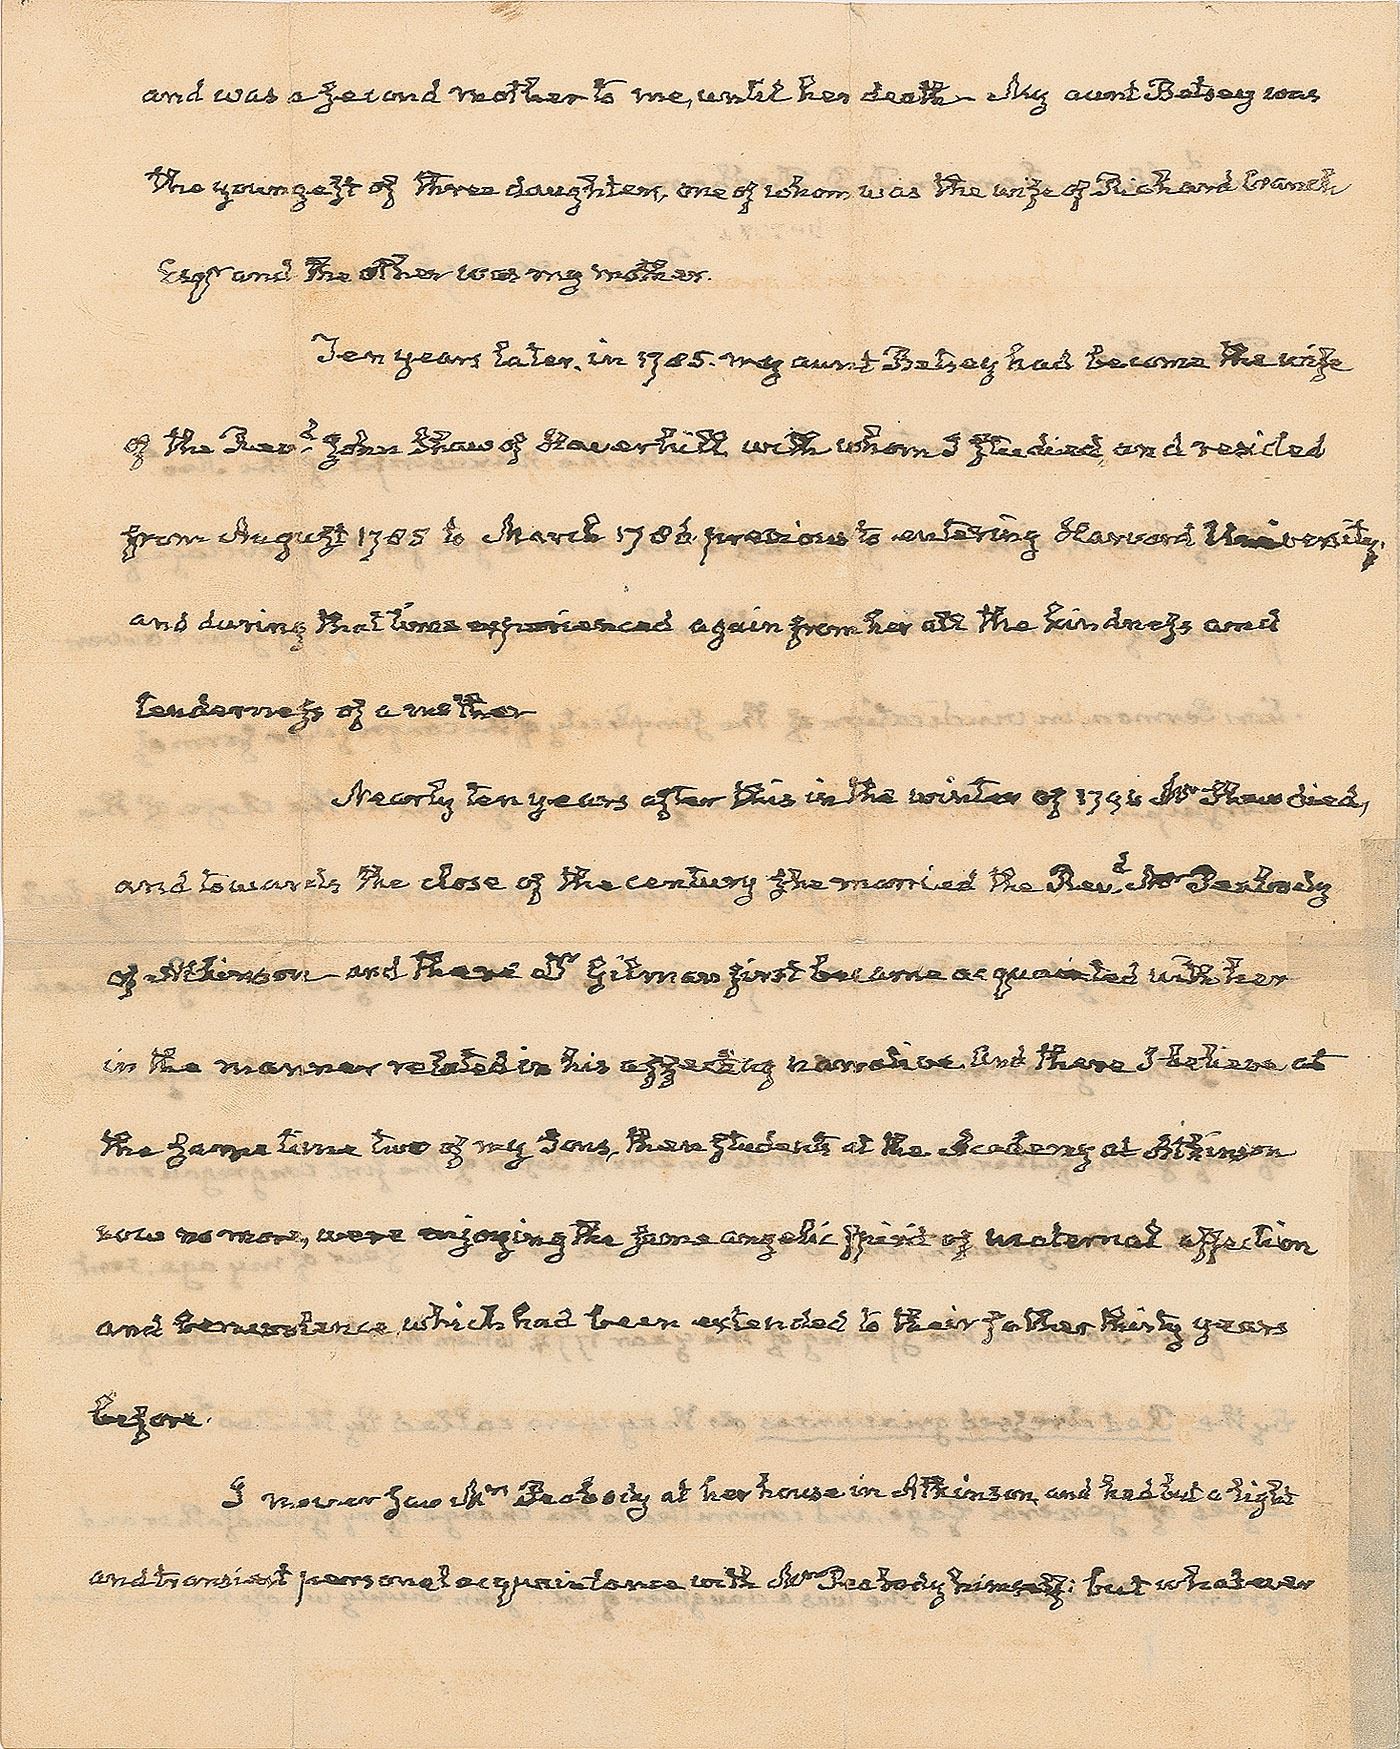 and was a second mother to me, until her death – My aunt Betsey was
the youngest of three daughters, one of whom was the wife of Richard Cranch
Esqr and the other was my mother.
Ten years later, in 1785. my aunt Betsey had become the wife
of the Revd John Shaw of Haverhill, with whom I studied, and resided
from August 1785 to March 1786 previous to entering Harvard University,
and during that time experienced again from her all the kindness and
tenderness of a mother
Nearly ten years after this in the winter of 1794 Mr Shaw died,
and towards the close of the century she married the Revd Mr Peabody
of Atkinson – and there Dr Gilman first became acquainted with her
in the manner related in his affecting narrative. And there I believe at
the same time two of my Sons, then students at the Academy at Atkinson
now no more, were enjoying the same angelic spirit of maternal affection
and beneficence, which had been extended to their father thirty years
before.
I never saw Mrs Peabody at her house in Atkinson, and had but a light
and transient personal acquaintance with Mr Peabody himself; but whatever